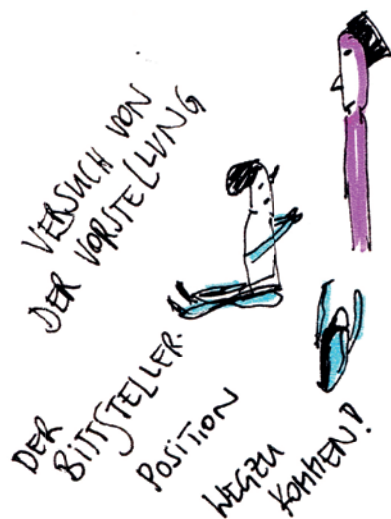 VERSUCH VON
DER VORSTELLUNG
DER
BITTSTELLER.
POSITION
WEGZU
KOMMEN!